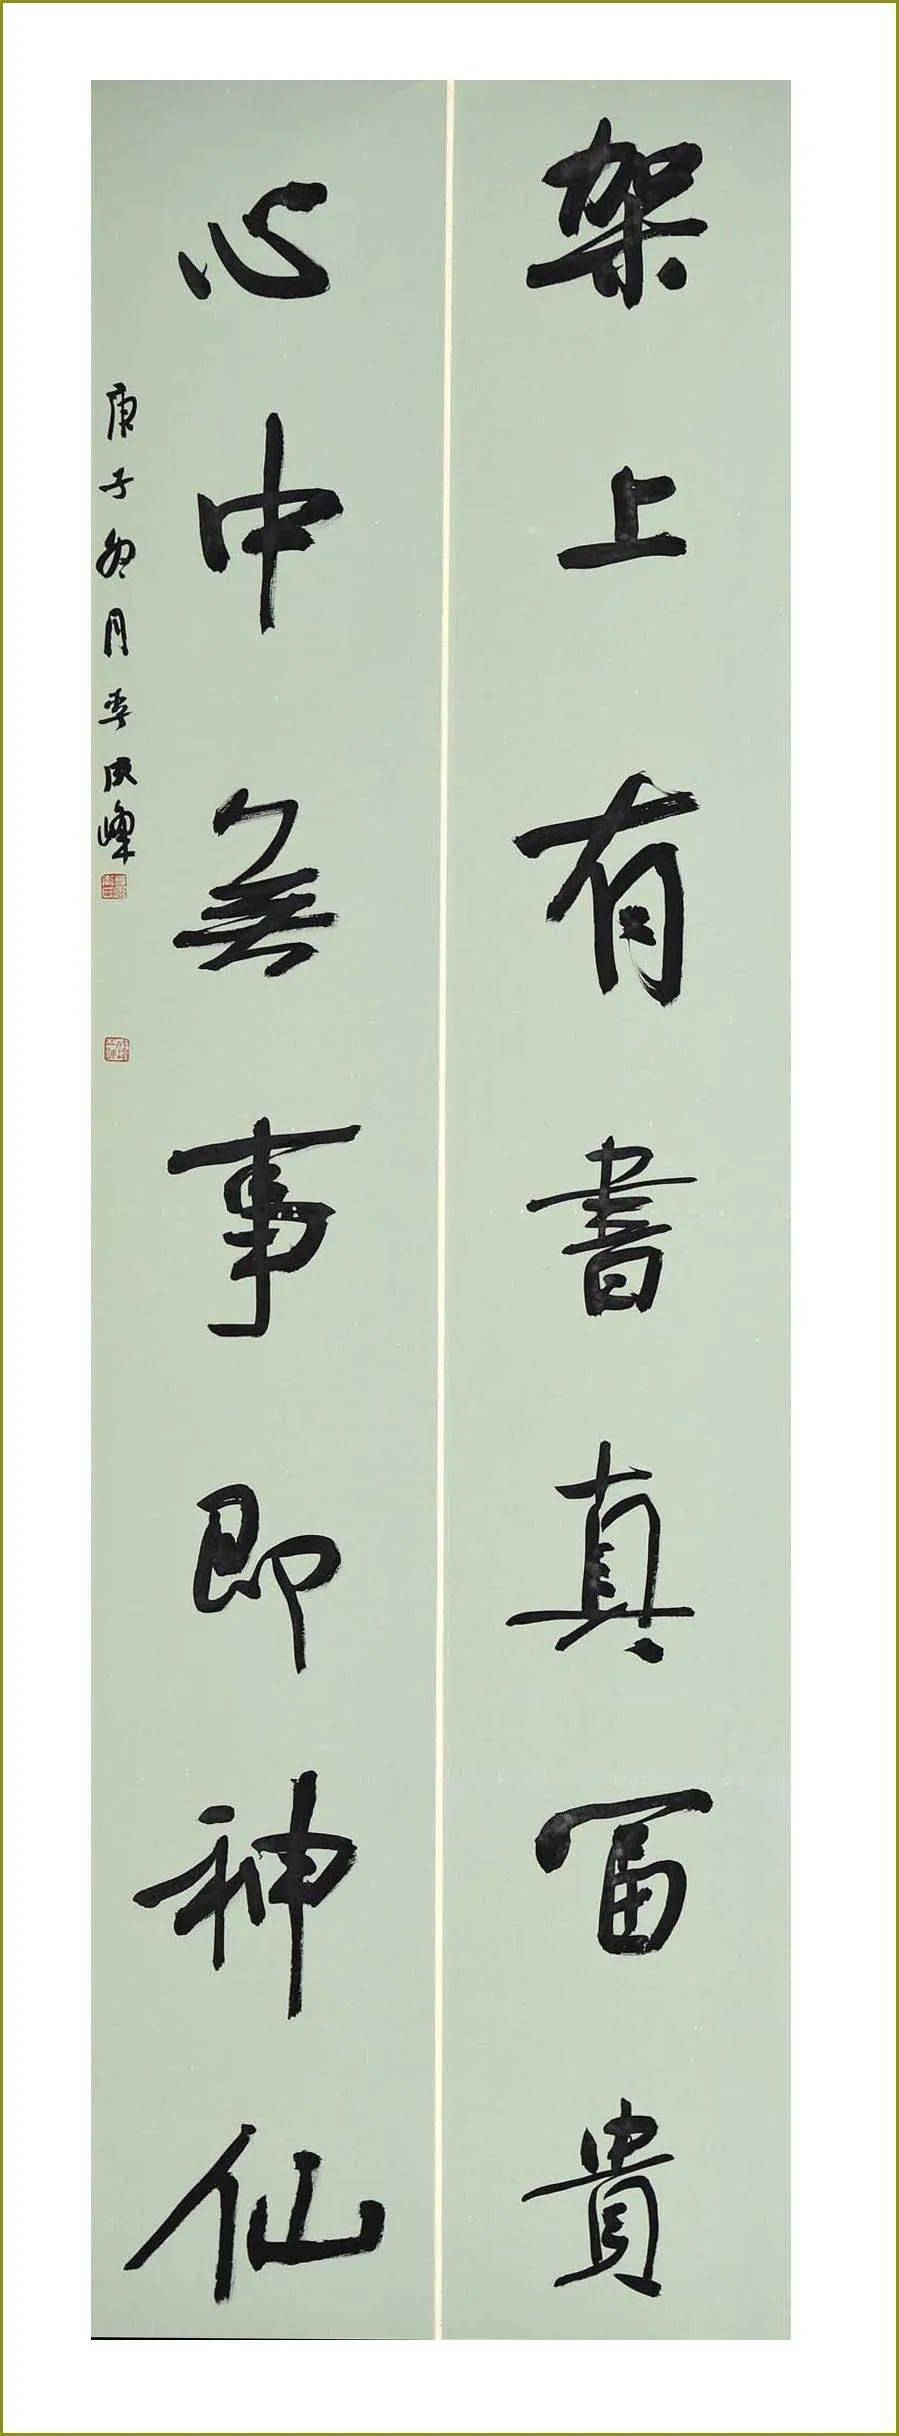 架上有書真冨貴
心中無事即神仙
庚子月李峰